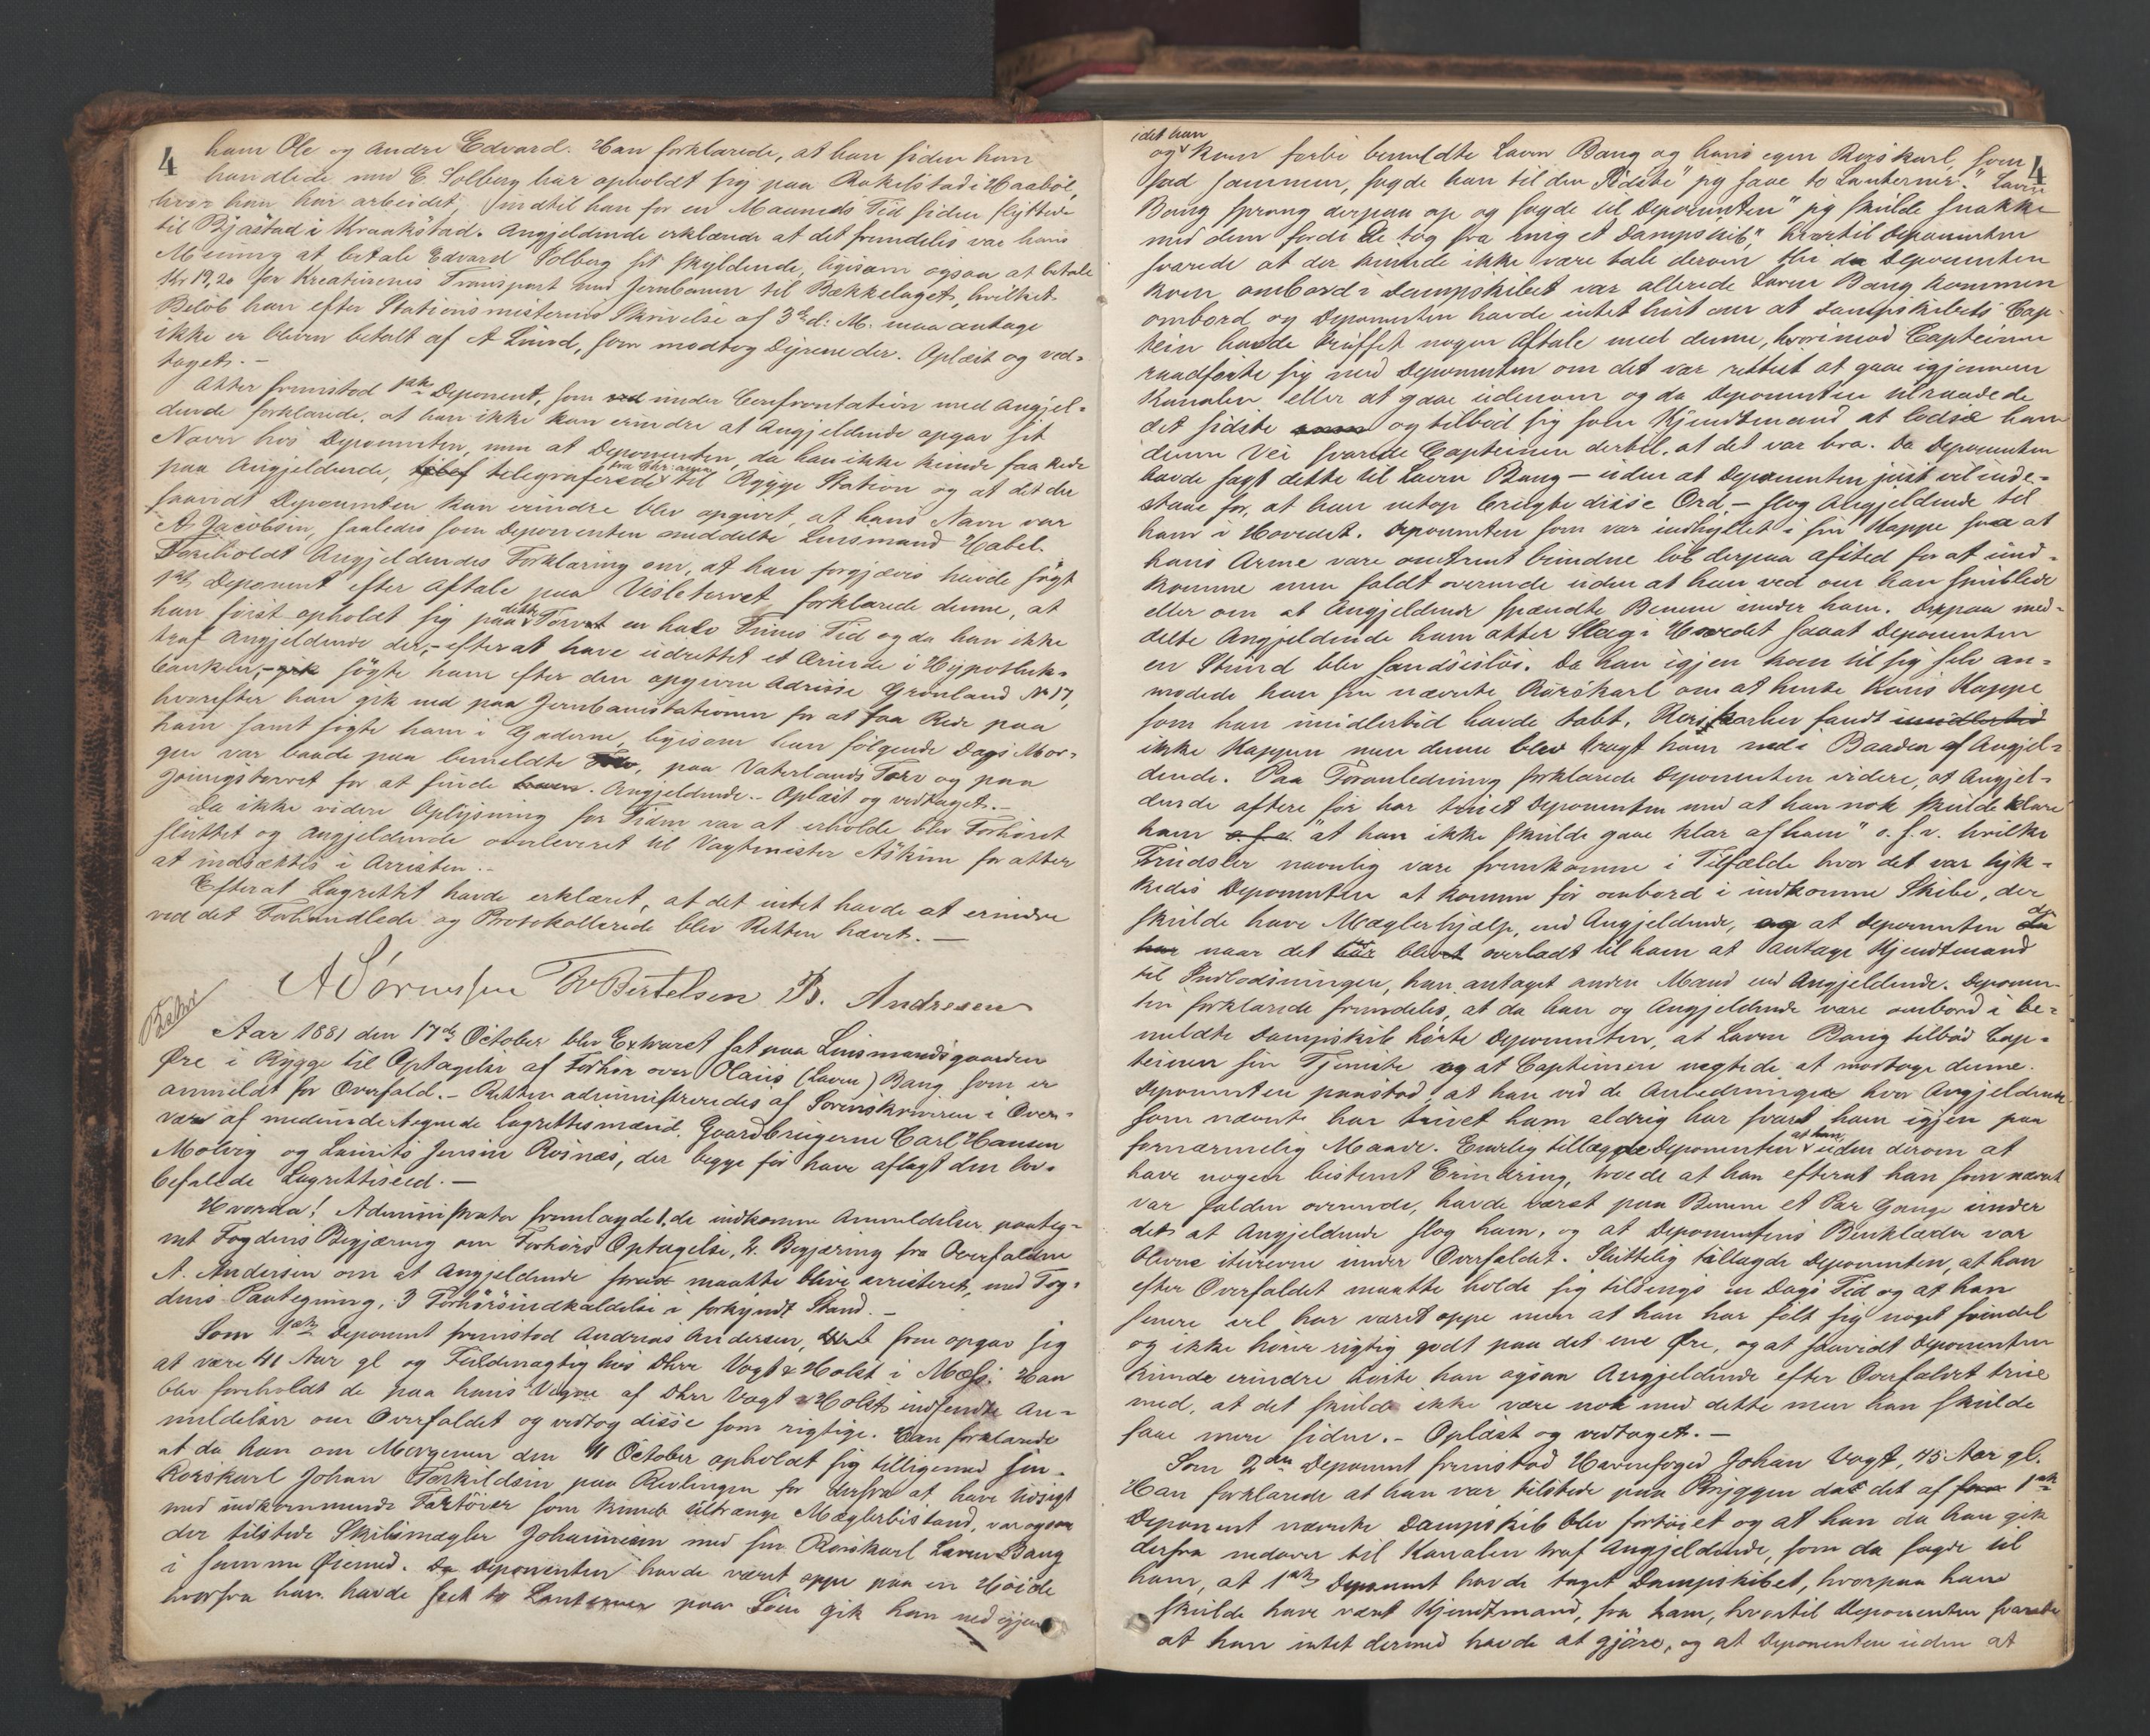 4
ham Ole og andre Edvard. Han forklarede, at han siden han
handlede med E. Solberg har opholdt sig paa Rakelstad i Haabøl,
hvor han har arbeidet, indtil han for en Maaneds Tid siden flyttede
til Bjästad i Kraakstad. Angjeldende erklærede at det fremdeles var hans
Mening at betale Edvard Solberg sit skyldende, ligesom ogsaa at betale
Kr 19,20 for Kreaturenes Transport med Jernbanen til Bækkelaget, hvilket
Beløb han efter Stationsmesterens Skrivelse af 3de d: M. maa antage
ikke er bleven betalt af A Lund, som modtog Dyrene der. Oplæst og ved-
taget. -
Atter fremstod 1ste Deponent, som ved under Confrontation med Angjel-
dende forklarede, at han ikke kan erindre at Angjeldende opgav sit
Navn hos Deponenten, men at Deponenten, da han ikke kunde faa Rede
paa Angjeldende, telegraferede fra Chr:ania til Rygge Station og at det der
saavidt Deponenten kan erindre blev opgivet, at hans Navn var
A. Jacobsen, saaledes som Deponenten meddelte Lensmand Habel.
Foreholdt Angjeldendes Forklaring om, at han forgjæves havde søgt
1ste Deponent efter Aftale paa Vesletorvet forklarede denne, at
han først opholdt sig paa dette Torvet en halv Times Tid og da han ikke
traf Angjeldende der, - efterat have udrettet et Ærinde i Hypothek-
banken, - gik søgte ham efter den opgivne Adresse Grønland No 17,
hvorefter han gik ned paa Jernbanestationen for at faa Rede paa
ham samt søgte ham i Gaderne, ligesom han følgende Dags Mor-
gen var baade paa bemeldte Torv, paa Vaterlands Torv og paa
Youngstorvet for at finde ham. Angjeldende. - Oplæst og vedtaget. -
Da ikke videre Oplysning for Tiden var at erholde blev Forhøret
sluttet og Angjeldende overleveret til Vagtmester Askim for atter
at indsættes i Arresten. -
Efterat Lagrettet havde erklæret, at det intet havde at erindre
ved det Forhandlede og Protokollerede blev Retten hævet. -
A Sørenssen Fr Bertelsen B. Andresen
Aar 1881 den 17de October blev Extraret sat paa Lensmandsgaarden
Øre i Rygge til Optagelse af Forhør over Olaus (Lauen) Bang som er
anmeldt for Overfald. - Retten administreredes af Sorenskriveren i Over-
vær af medundertegnede Lagrettesmænd. Gaardbrugerne Carl Hansen
Molvig og Laurits Jensen Rosnæs, der begge før have aflagt den lov-
befalede Lagretteseed. -
Hvorda! Administrator fremlagde 1, de indkomne Anmeldelser paateg-
net Fogdens Begjæring om Forhørs Optagelse, 2. Begjæring fra Overfaldne
A. Andersen om at Angjeldende straxt maatte blive arresteret, med Fog-
dens Paategning, 3 Forhørsindkaldelse i forkyndt Stand. -
Som 1ste Deponent fremstod Andreas Andersen, som opgav sig
at være 41 Aar gl og Fuldmægtig hos Dhrr Vogt & Holst i Moss. Han
blev foreholdt de paa hans Vegne af Dhrr Vogt & Holst indsendte An-
meldelser om Overfaldet og vedtog disse som rigtige. Han forklarede
at da han om Morgenen den 11 October opholdt sig tilligemed sin
Rorskarl Johan Torkildsen paa Revlingen for derfra at have Udsigt
med indkommende Fartøier som kunde tiltrænge Mæglerbistand, var ogsaa
der tilstede Skibsmægler Johannesen med sin Rorskarl Lauen Bang
i samme Øiemed. Da Deponenten havde været oppe paa en Høide
hvorfra han havde seet to Lanterner paa Søen gik han ned igjen
4
idet han
og kom forbi bemeldte Lauen Bang og hans egen Rorskarl, som
sad sammen, sagde han til den Sidste "jeg saae to Lanterner." Lauen
Bang sprang derpaa op og sagde til Deponenten "jeg skulde snakke
med dem fordi De tog fra meg et Dampskib", hvortil Deponenten
svarede at der kunde ikke være tale derom thi da Deponenten
kom ombord i Dampskibet var allerede Lauen Bang kommen
ombord og Deponenten havde intet hørt om at Dampskibets Cap-
tein havde truffet nogen Aftale med denne, hvorimod Capteinen
raadførte sig med Deponenten om det var rettest at gaae igjennem
Kanalen eller at gaae udenom og da Deponenten tilraadede
det sidste og tilbød sig som Kjendtmand at lodse ham
denne Vei svarede Capteinen dertil, at det var bra. Da Deponenten
havde sagt dette til Lauen Bang - uden at Deponenten just vil inde-
staae for, at han netop brugte disse Ord, - slog Angjeldende til
ham i Hovedet. Deponenten som var indhyllet i sin Kappe saa at
hans Arme vare omtrent bundne løb derpaa afsted for at und-
komme men faldt overende uden at han ved om han snublede
eller om at Angjeldende spændte Benene under ham. Derpaa med-
delte Angjeldende ham atter Slag i Hovedet saaat Deponenten
en Stund blev sandsesløs. Da han igjen kom til sig selv an-
modede han sin nævnte Rorskarl om at hente hans Kappe
som han imidlertid havde tabt. Rorskarlen fandt imidlertid
ikke Kappen men denne blev bragt ham ned i Baaden af Angjel-
dende. Paa Foranledning forklarede Deponenten videre, at Angjel-
dende oftere før har truet Deponenten med at han nok skulde klare
ham o.s.v. "at han ikke skulde gaae klar af ham" o.s.v. hvilke
Trudsler navnlig vare fremkomne i Tilfælde hvor det var lyk-
kedes Deponenten at komme før ombord i indkomne Skibe, der
skulde have Mæglerhjælp, end Angjeldende, og at Deponenten
har naar det blevet overladt til ham at antage Kjendtmand
til Indlodsningen, har antaget anden Mand end Angjeldende. Deponen-
ten forklarede fremdeles, at da han og Angjeldende vare ombord i be-
meldte Dampskib hørte Deponenten, at Lauen Bang tilbød Cap-
teinen sin Tjeneste og at Capteinen negtede at modtage denne.
Deponenten paastod, at han ved de Anledninger hvor Angjeldende
som nævnte har truet ham aldrig har svaret ham igjen paa
fornærmelig Maade. Endelig tillagde Deponenten at han uden derom at
have nogen bestemt Erindring, troede at han efterat han som nævnt
var falden overende, havde været paa Benene et Par Gange under
det at Angjeldende slog ham, og at Deponentens Benklæder var
blevne iturevne under Overfaldet. Sluttelig tillagde Deponenten, at han
efter Overfaldet maatte holde sig tilsengs en Dags Tid og at han
senere vel har været oppe men at han har følt sig noget svimmel
og ikke hører rigtig godt paa det ene Øre, og at saavidt Deponenten
kunde erindre hørte han ogsaa Angjeldende efter Overfaldet true
med, at det skulde ikke være nok med dette men han skulde
faae mere siden. - Oplæst og vedtaget. -
Som 2den Deponent fremstod Havnefoged Johan Vogt, 45 Aar gl.
Han forklarede at han var tilstede paa Bryggen da det af 1ste
Deponent nævnte Dampskib blev fortøiet og at han da han gik
derfra nedover til Kanalen traf Angjeldende, som da sagde til
ham, at 1ste Deponent havde taget Dampskibet, hvorpaa han
skulde have været Kjendtmand, fra ham, hvortil Deponenten svarede
at han intet dermed havde at gjøre, og at Deponenten uden at